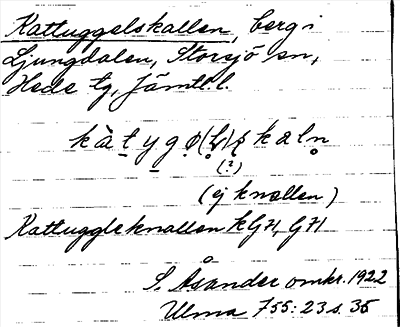 Kattuggelskallen, berg i
Ljungdalen, Storsjö sn,
Hede tg, Jämtl. l.
kàtygø(l)skaln
(?)
(ej knallen)
Kattuggleknallen KGH, GH
S. Åsander omkr. 1922
Ulma 755:23 s. 35